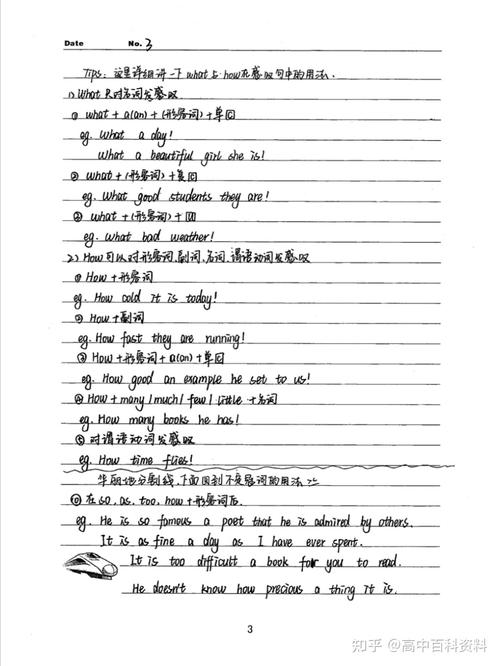 Date No. 3
Tips: 这里详细讲一下what与how在感叹句中的用法.
1) What 只对名词发感叹
① what + a(an) + (形容词) + 单
eg. What a day!
What a beautiful girl she is!
② what + (形容词) + 复
eg. What good students they are!
③ what + (形容词) +
eg. What bad weather!
2) How可以对形容词,副词,名词,谓语动词发感叹
① How + 形容词
eg. How cold it is today!
② How + 副词
eg. How fast they are running!
③ How + 形容词 + a(an) + 单
eg. How good an example he set to us!
④ How + many / much / few / little + 名词
eg. How many books he has!
⑤ 对谓语动词发感叹
eg. How time flies!
华丽地分割线,下面回到不定冠词的用法
⑩ 在so, as, too, how + 形容词后.
eg. He is so famous a poet that he is admired by others.
It is as fine a day as I have ever spent.
It is too difficult a book for you to read.
He doesn't know how precious a thing it is.
3
知乎 @高中百科资料